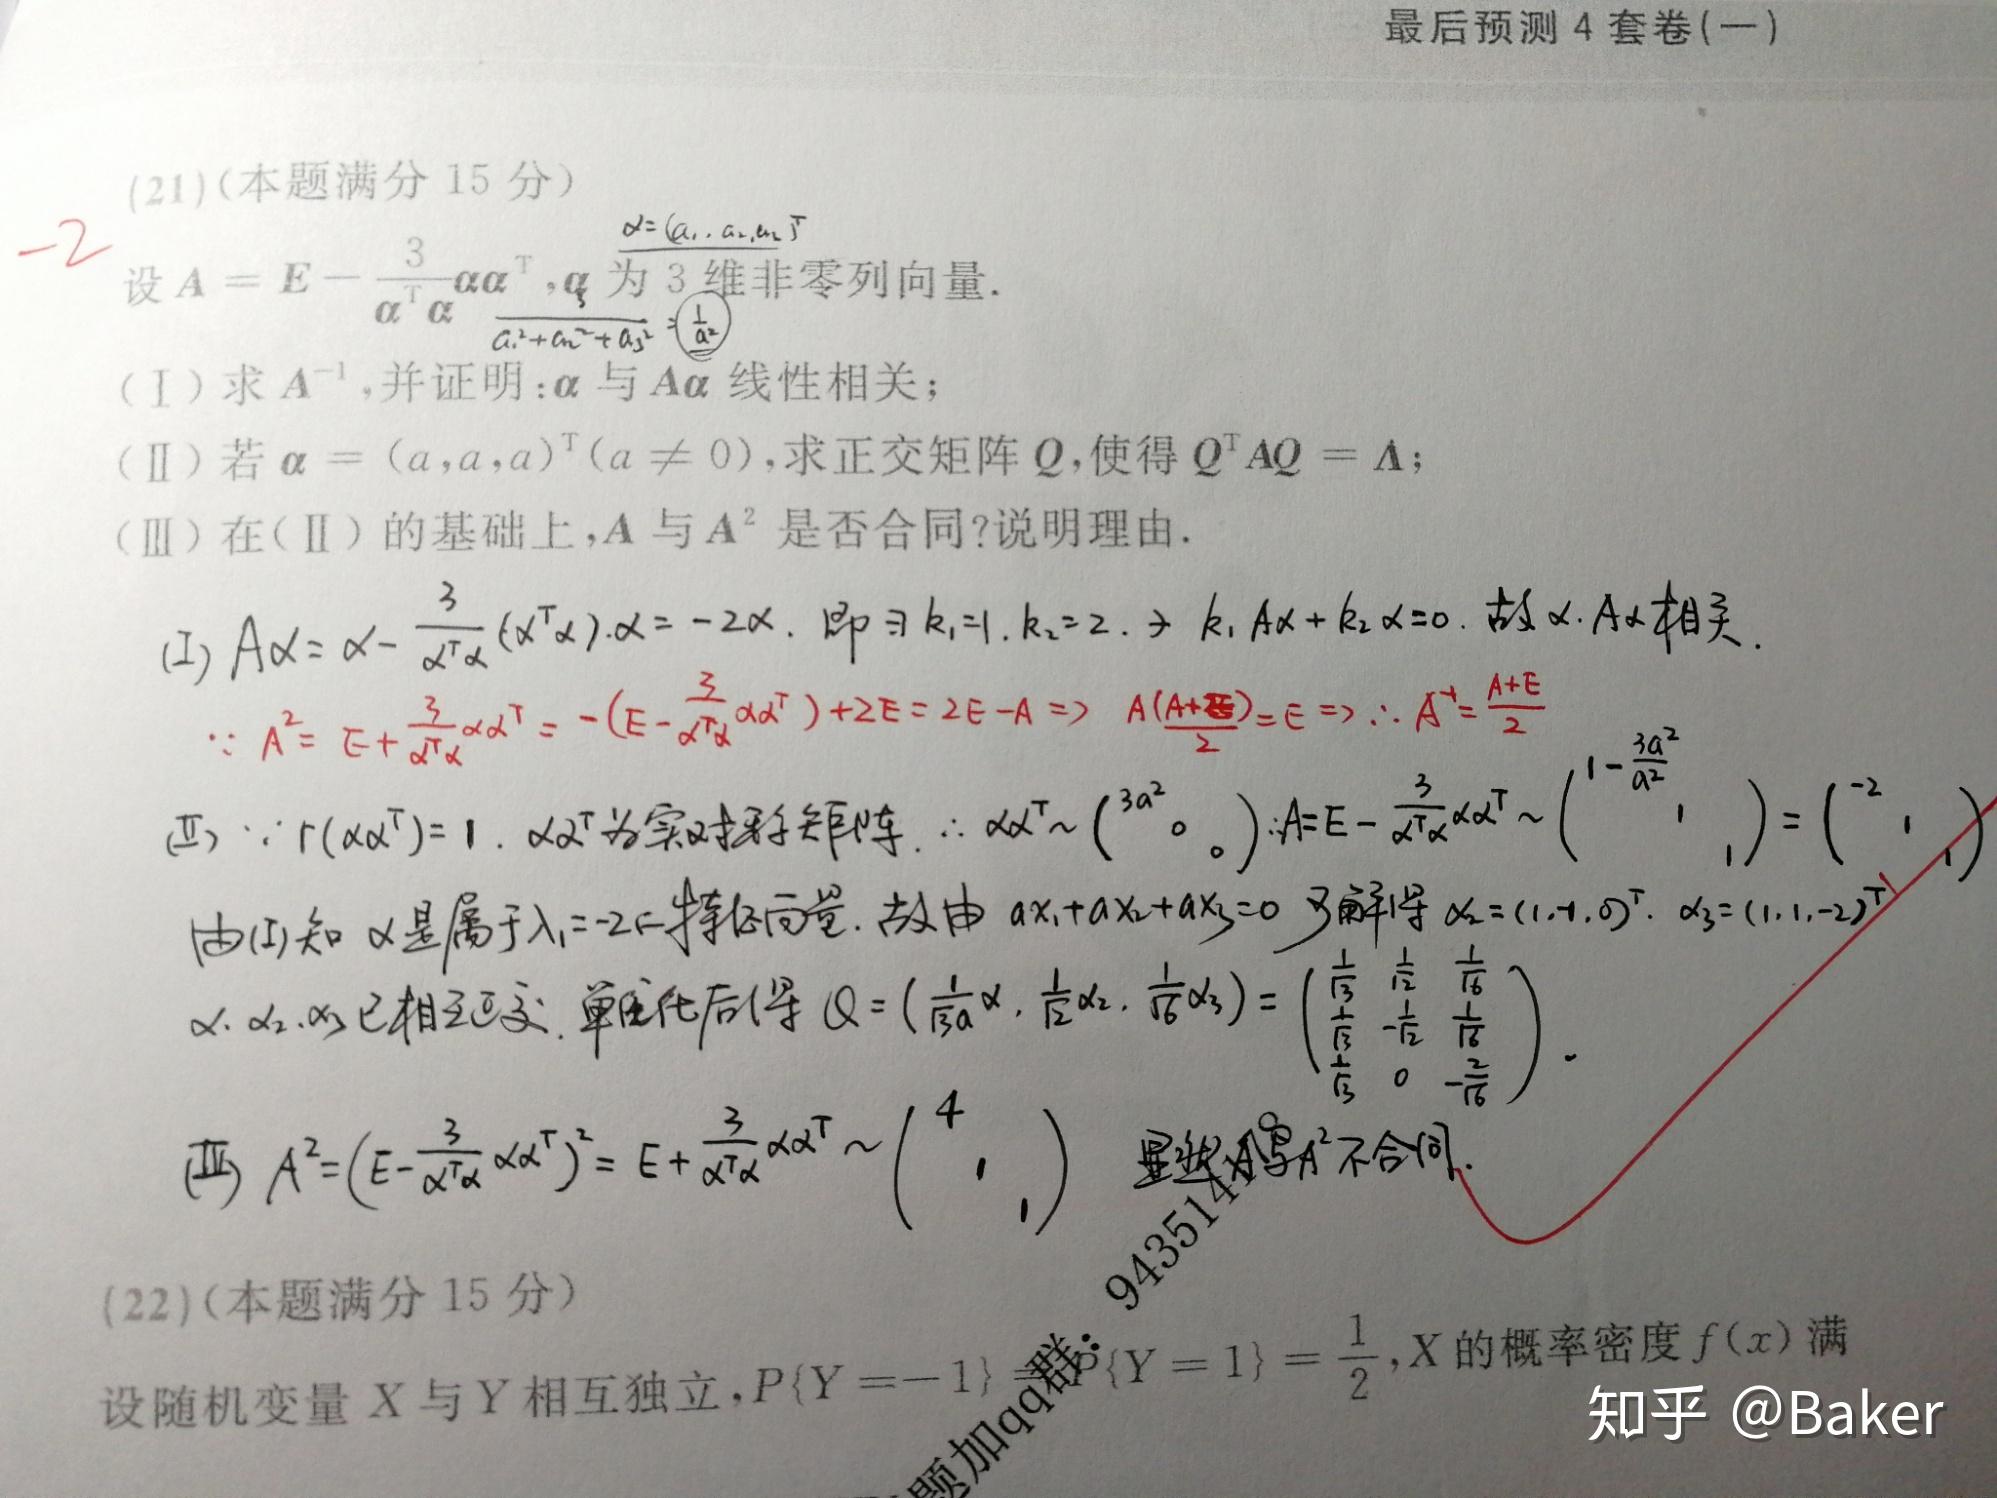 最后预测4套卷(一)
(21)(本题满分 15 分)
-2
α=(a₁,a₂,a₂)ᵀ
设 A = E − 3/(αᵀα) ααᵀ, α 为 3 维非零列向量.
a₁²+a₂²+a₃² = 1/a²
(Ⅰ)求 A⁻¹,并证明:α 与 Aα 线性相关;
(Ⅱ)若 α = (a,a,a)ᵀ(a ≠ 0),求正交矩阵 Q,使得 QᵀAQ = Λ;
(Ⅲ)在(Ⅱ)的基础上,A 与 A² 是否合同?说明理由.
(I) Aα = α − 3/(αᵀα) (αᵀα)·α = −2α. 即∃ k₁=1. k₂=2. → k₁Aα + k₂α=0. 故 α. Aα 相关.
∵ A² = E + 3/(αᵀα) ααᵀ = −(E − 3/(αᵀα) ααᵀ) + 2E = 2E − A => A(A+E)/2 = E => ∴ A⁻¹ = (A+E)/2
(Ⅱ) ∵ r(ααᵀ)=1. ααᵀ为实对称矩阵. ∴ ααᵀ ~ (3a² 0 0) ∴A=E − 3/(αᵀα) ααᵀ ~ (1−3a²/a² 1 1) = (−2 1 1)
由(I)知 α是属于λ₁=−2的特征向量. 故由 ax₁+ax₂+ax₃=0 可解得 α₂=(1,-1,0)ᵀ. α₃=(1,1,-2)ᵀ
α. α₂. α₃已相互正交. 单位化后得 Q = (1/√3a α, 1/√2 α₂, 1/√6 α₃) = (1/√3 1/√2 1/√6
1/√3 −1/√2 1/√6
1/√3 0 −2/√6).
(Ⅲ) A² = (E − 3/(αᵀα) ααᵀ)² = E + 3/(αᵀα) ααᵀ ~ (4 1 1) 显然 A与A²不合同.
(22)(本题满分 15 分)
设随机变量 X 与 Y 相互独立,P{Y =−1} = P{Y = 1} = 1/2, X 的概率密度 f(x) 满
题加qq群:
知乎 @Baker